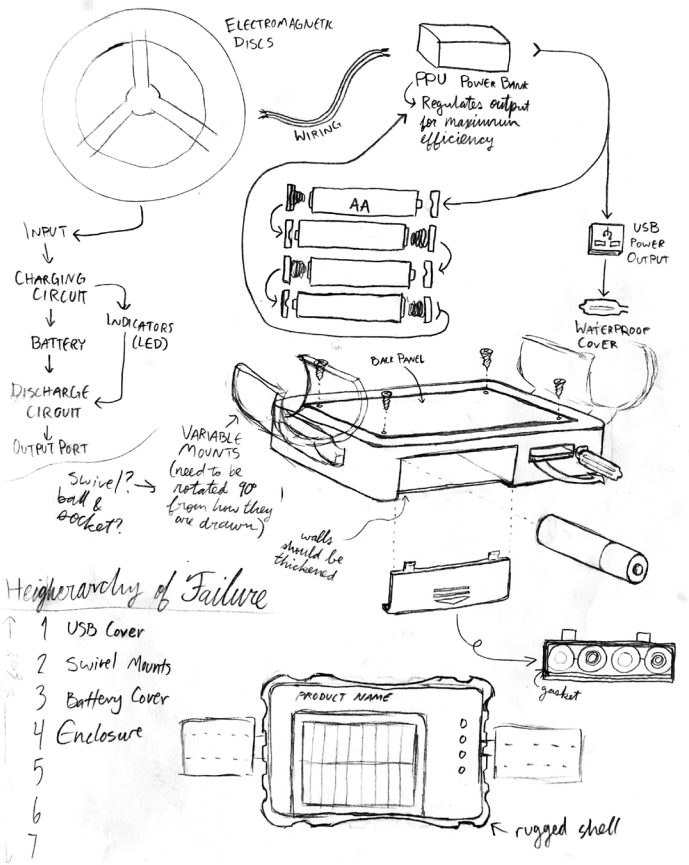 ELECTROMAGNETIC
DISCS
WIRING
PPU POWER BANK
Regulates output
for maximum
efficiency
AA
USB
POWER
OUTPUT
WATERPROOF
COVER
INPUT
CHARGING
CIRCUIT
INDICATORS
(LED)
BATTERY
DISCHARGE
CIRCUIT
OUTPUT PORT
BACK PANEL
VARIABLE
MOUNTS
(need to be
rotated 90°
from how they
are drawn)
!
Swivel?
ball &
socket?
walls
should be
thickened
gasket
Heigherarchy of Failure
1 USB Cover
2 Swivel Mounts
3 Battery Cover
4 Enclosure
5
6
7
PRODUCT NAME
rugged shell